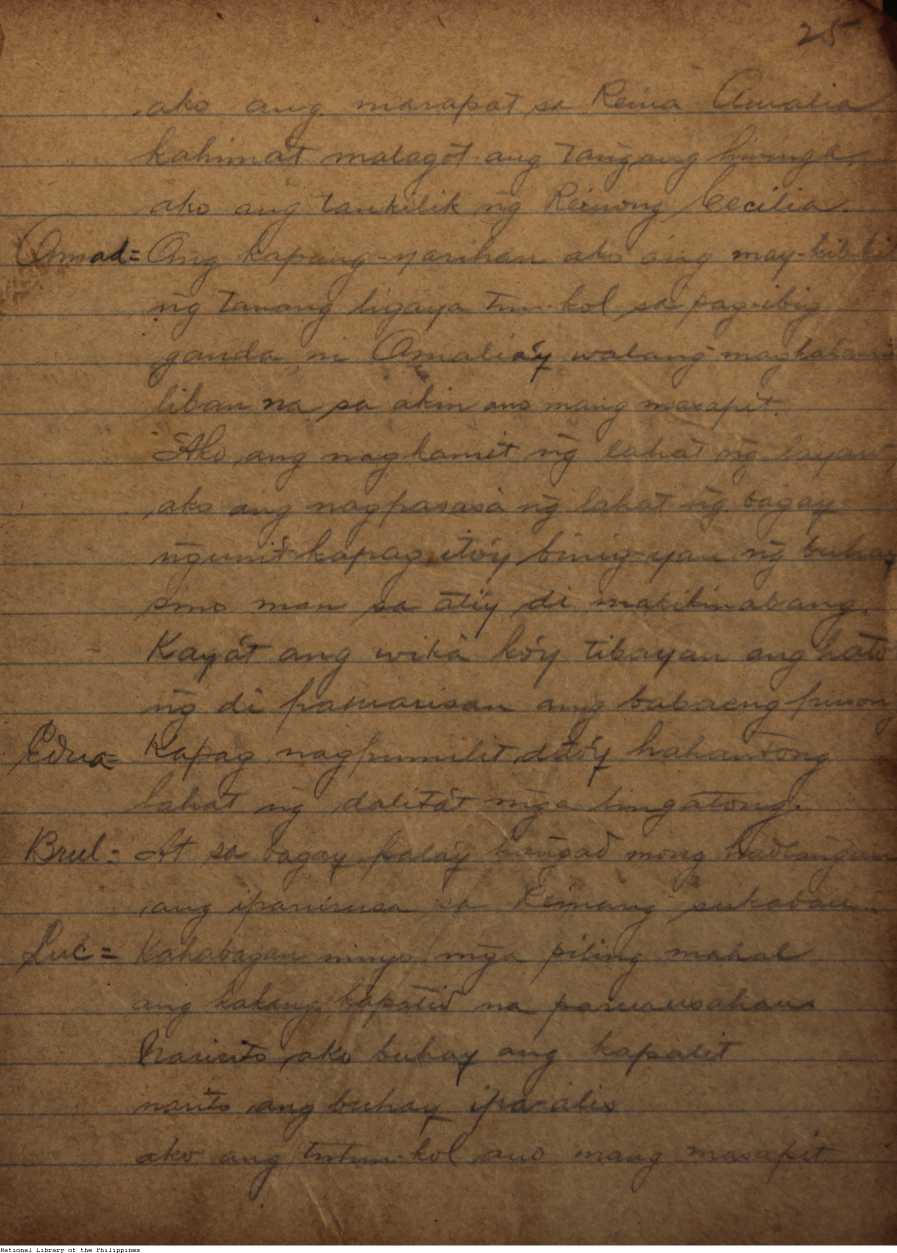 25
ako ang marapat sa Reina Amalia
kahimat malagot ang tangang hininga,
ako ang tankilik ng Reinong Cecilia.
Amad= Ang kapang-yarihan ako ang may-bit-bit
ng tanang ligaya tun-kol sa pag-ibig
ganda ni Amalia'y walang
liban na sa akin ano mang masapit.
Ako ang nagkamit ng lahat ng layaw,
ako ang nagpasasa ng lahat ng bagay
ngunit kapag ito'y binig-yan ng buhay
sino man sa ati'y di makikinabang.
Kaya't ang wika ko'y tibayan ang hato
ng di pamarisan ang babaeng
Edua= Kapag nagpumilit dito'y hahantong
lahat ng dalita't mga lingatong.
Brul= At sa bagay pala'y mong
ang iparusa sa Reinang sukaban
Luc= Kahabagan ninyo mga piling mahal
ang kakang kapatid na parurusahan
Naririto ako buhay ang kapalit
narito ang buhay ipa-alis
ako ang tutun-kol ano mang masapit
National Library of the Philippines